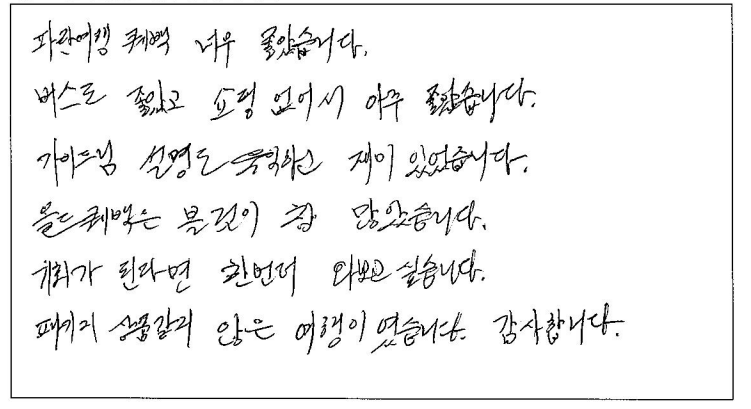 파란여행 퀘백 너무 좋았습니다.
버스도 좋았고 쇼핑 없어서 아주 좋았습니다.
가이드님 설명도 유익하고 재미 있었습니다.
올드퀘백은 볼것이 참 많았습니다.
기회가 된다면 한번더 와보고 싶습니다.
패키지 상품같지 않은 여행이였습니다. 감사합니다.